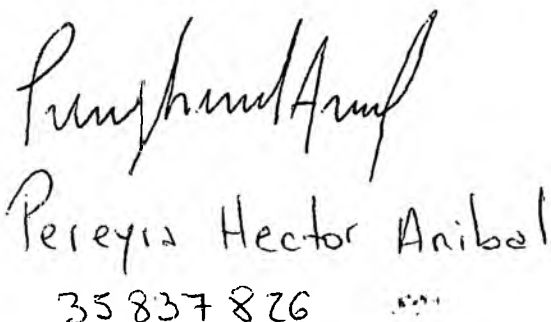 Pereyra Hector Anibal
35837826